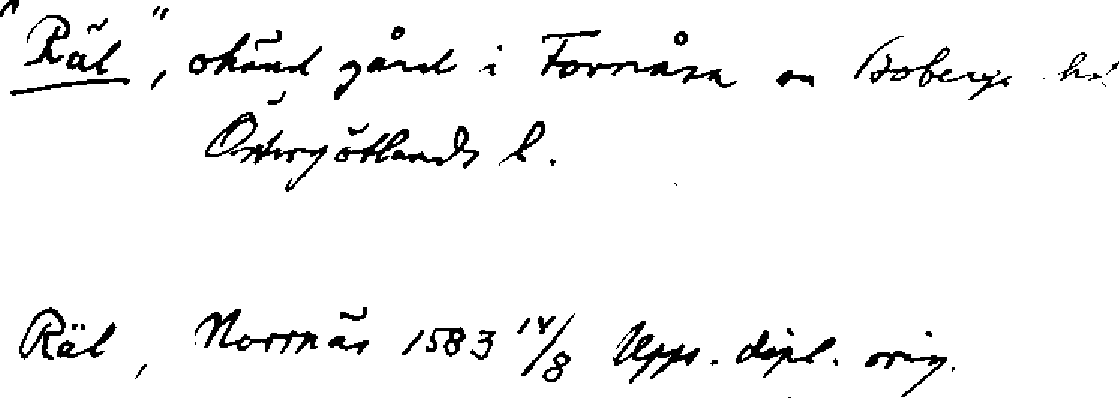 "Räl", okänd gård i Fornåsa sn Bobergs hd
Östergötlands l.
Räl, Norrnäs 1583 14/8 Upps. dipl. orig.